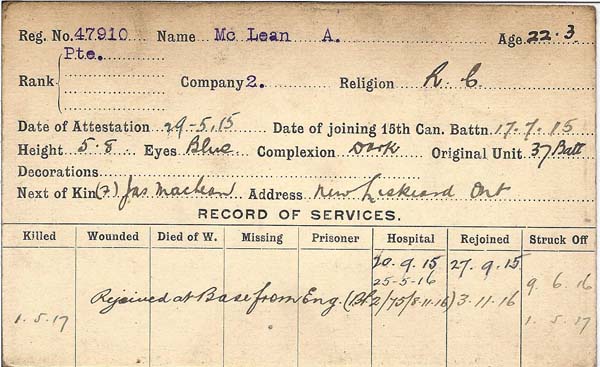 Reg. No. 47910 Name Mc Lean A. Age 22.3
Pte.
Rank Company 2. Religion R. C.
Date of Attestation 29-5.15 Date of joining 15th Can. Battn 17.7.15
Height 5.8 Eyes Blue Complexion Dark Original Unit 37 Batt
Decorations
Next of Kin (F) Jas Maclean Address New Liskeard Ont
RECORD OF SERVICES.
Killed Wounded Died of W. Missing Prisoner Hospital Rejoined Struck Off
20.9.15 27.9.15
25-5-16 9.6.16
Rejoined at Base from Eng. (BL 2/75/8-11-16) 3.11.16
1.5.17 1.5.17